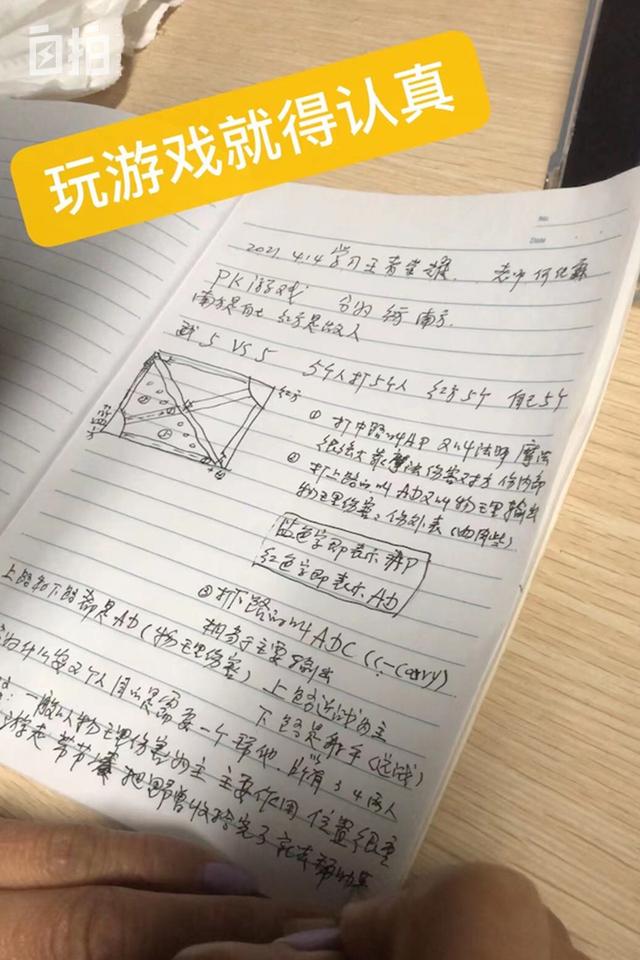 自拍
玩游戏就得认真
No.
Date
2021 4.14 学习王者荣耀 老师何
PK游戏 分为 南方
南方是自己 红方是敌人
5 VS 5 5个人打5个人 红方5个 自己5个
红方
① 打中路叫AP 又叫法师 魔法
魔法伤害对方 伤内部
② 打上路叫AD又叫物理输出
物理伤害。伤外表(肉)
蓝色字即表示 AP
红色字即表示 AD
③ 打下路叫ADC (Carry)
相当于主要输出
上路和下路都是AD(物理伤害) 上路近战为主
下路是射手(远战)
为什么 又 人 因 是需要一个帮他
一般以物理伤害为主 主要作用 位置很重
游走 节 把野兽收拾完了就去帮助